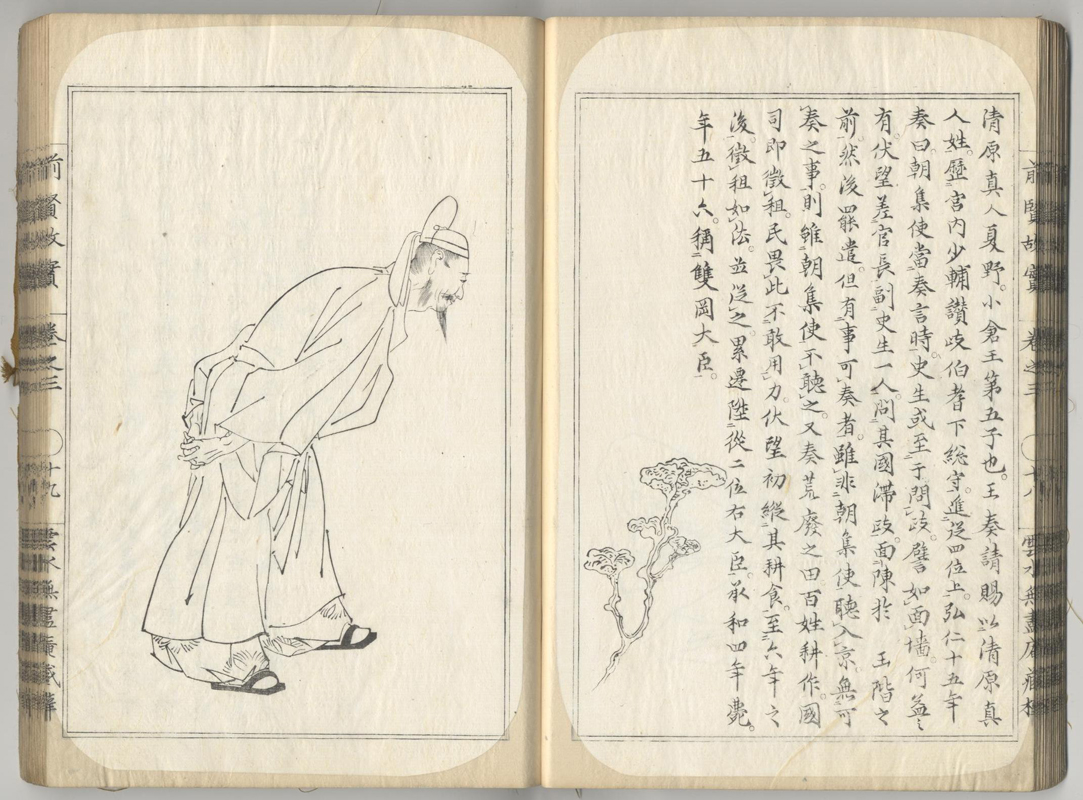 前賢故實 卷之三 十八 雲水無盡庵藏梓
清原真人夏野。小倉王第五子也。王奏請賜以清原真
人姓。歷宮内少輔讃岐伯耆下總守。進從四位上。弘仁十五年
奏曰。朝集使當奏言時。史生或至于問政。譬如面墻。何益之
有。伏望差官長副史生一人。問其國滞政。面陳於 王階之
前。然後罷遣。但有事可奏者。雖非朝集使聽入京。無可
奏之事。則雖朝集使不聽之。又奏荒廢之田百姓耕作。國
司即徵租。民畏此不敢用力。伏望初縱其耕食。至六年之
後。徵租如法。並從之。累遷陞從二位右大臣。承和四年薨。
年五十六。稱雙岡大臣。
前賢故實 卷之三 十九 雲水無盡庵藏梓